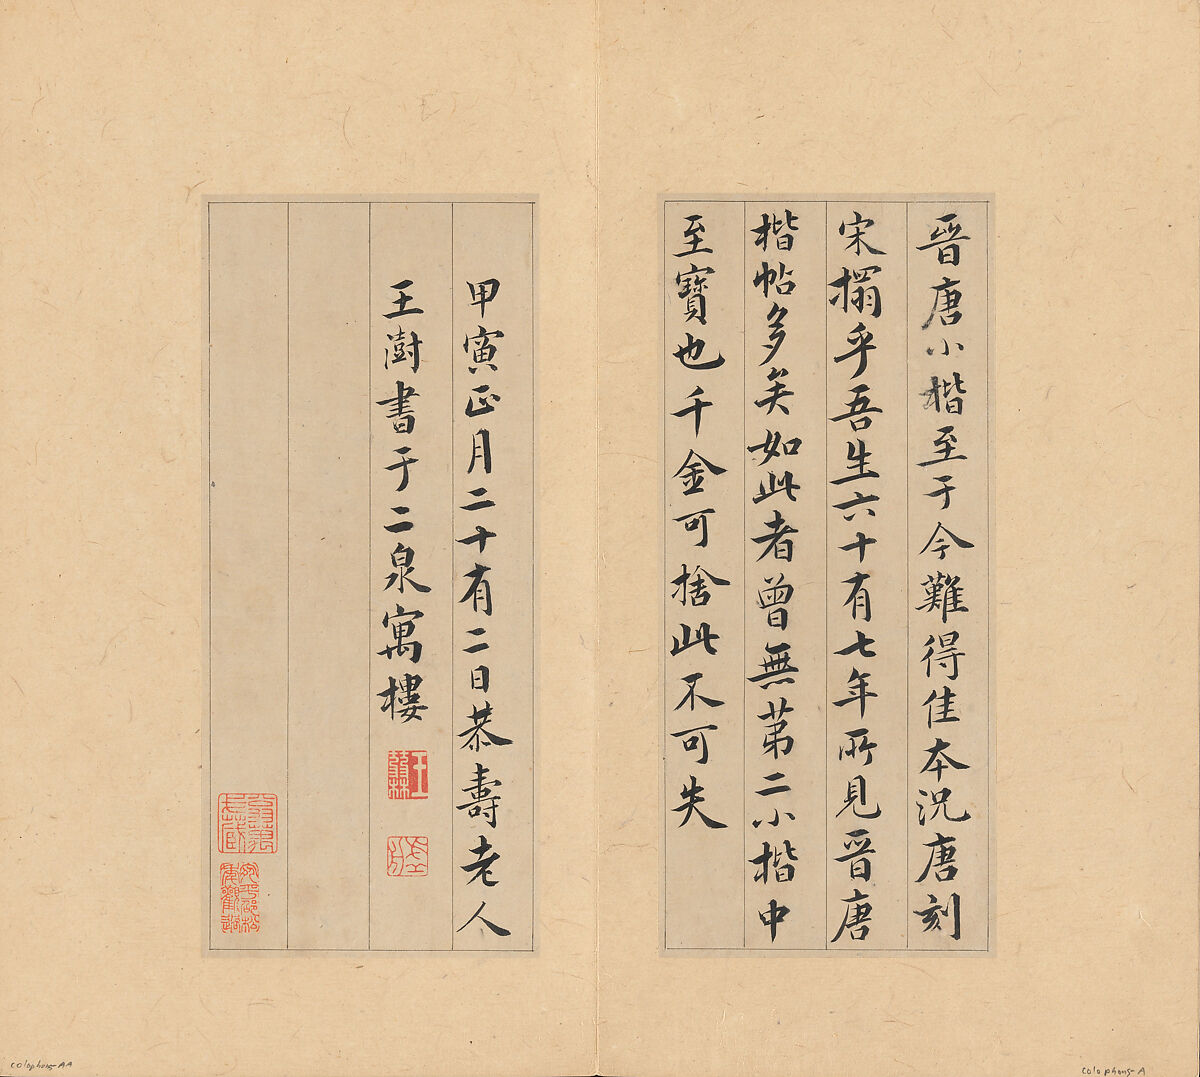 晉唐小楷至于今難得佳本況唐刻
宋搨乎吾生六十有七年所見晉唐
楷帖多矣如此者曾無第二小楷中
至寶也千金可捨此不可失
甲寅正月二十有二日恭壽老人
王澍書于二泉寓樓
colophons-AA
colophons-A